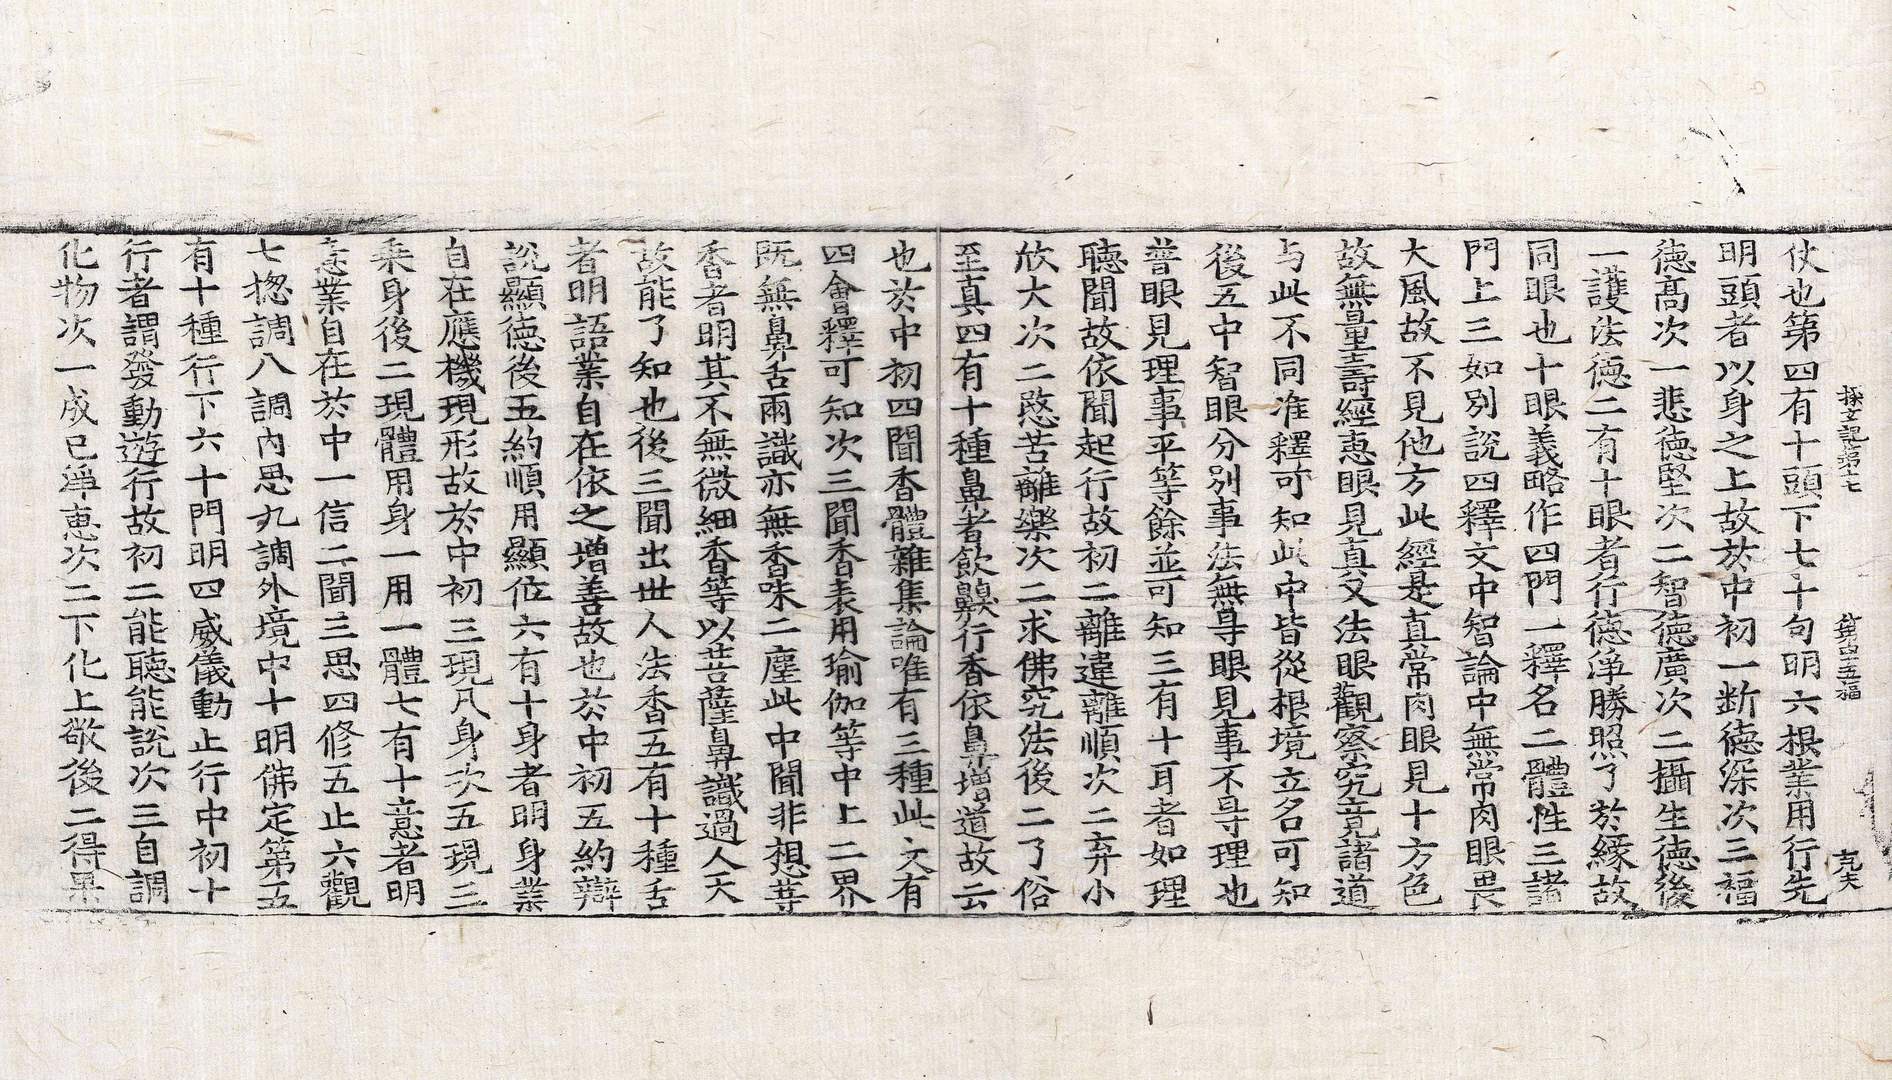 探玄記第十七 第四五福 九丈
仗也第四有十頭下七十句明六根業用行先
明頭者以身之上故於中初一断德深次三福
德髙次一悲德堅次二智德廣次二攝生德後
一護法德二有十眼者行德淨勝照了於緣故
同眼也十眼義略作四門一釋名二體性三諸
門上三如別說四釋文中智論中無常肉眼畏
大風故不見他方此經是直常肉眼見十方色
故無量壽經惠眼見真又法眼觀察究竟諸道
与此不同准釋可知此中皆從根境立名可知
後五中智眼分別事法無㝵眼見事不㝵理也
普眼見理事平等餘並可知三有十耳者如理
聽聞故依聞起行故初二離違離順次二弃小
欣大次二愍苦離樂次二求佛究法後二了俗
至真四有十種鼻者飲齅行香依鼻增道故云
也於中初四聞香體雜集論唯有三種此文有
四會釋可知次三聞香表用瑜伽等中上二界
既無鼻舌兩識亦無香味二塵此中聞非想等
香者明其不無微細香等以菩薩鼻識過人天
故能了知也後三聞出世人法香五有十種舌
者明語業自在依之增善故也於中初五約辯
說顯德後五約順用顯位六有十身者明身業
自在應機現形故於中初三現凡身次五現三
乘身後二現體用身一用一體七有十意者明
意業自在於中一信二聞三思四修五止六觀
七揔調八調內思九調外境中十明佛定第五
有十種行下六十門明四威儀動止行中初十
行者謂發動遊行故初二能聽能說次三自調
化物次一成已淨惠次二下化上敬後二得果